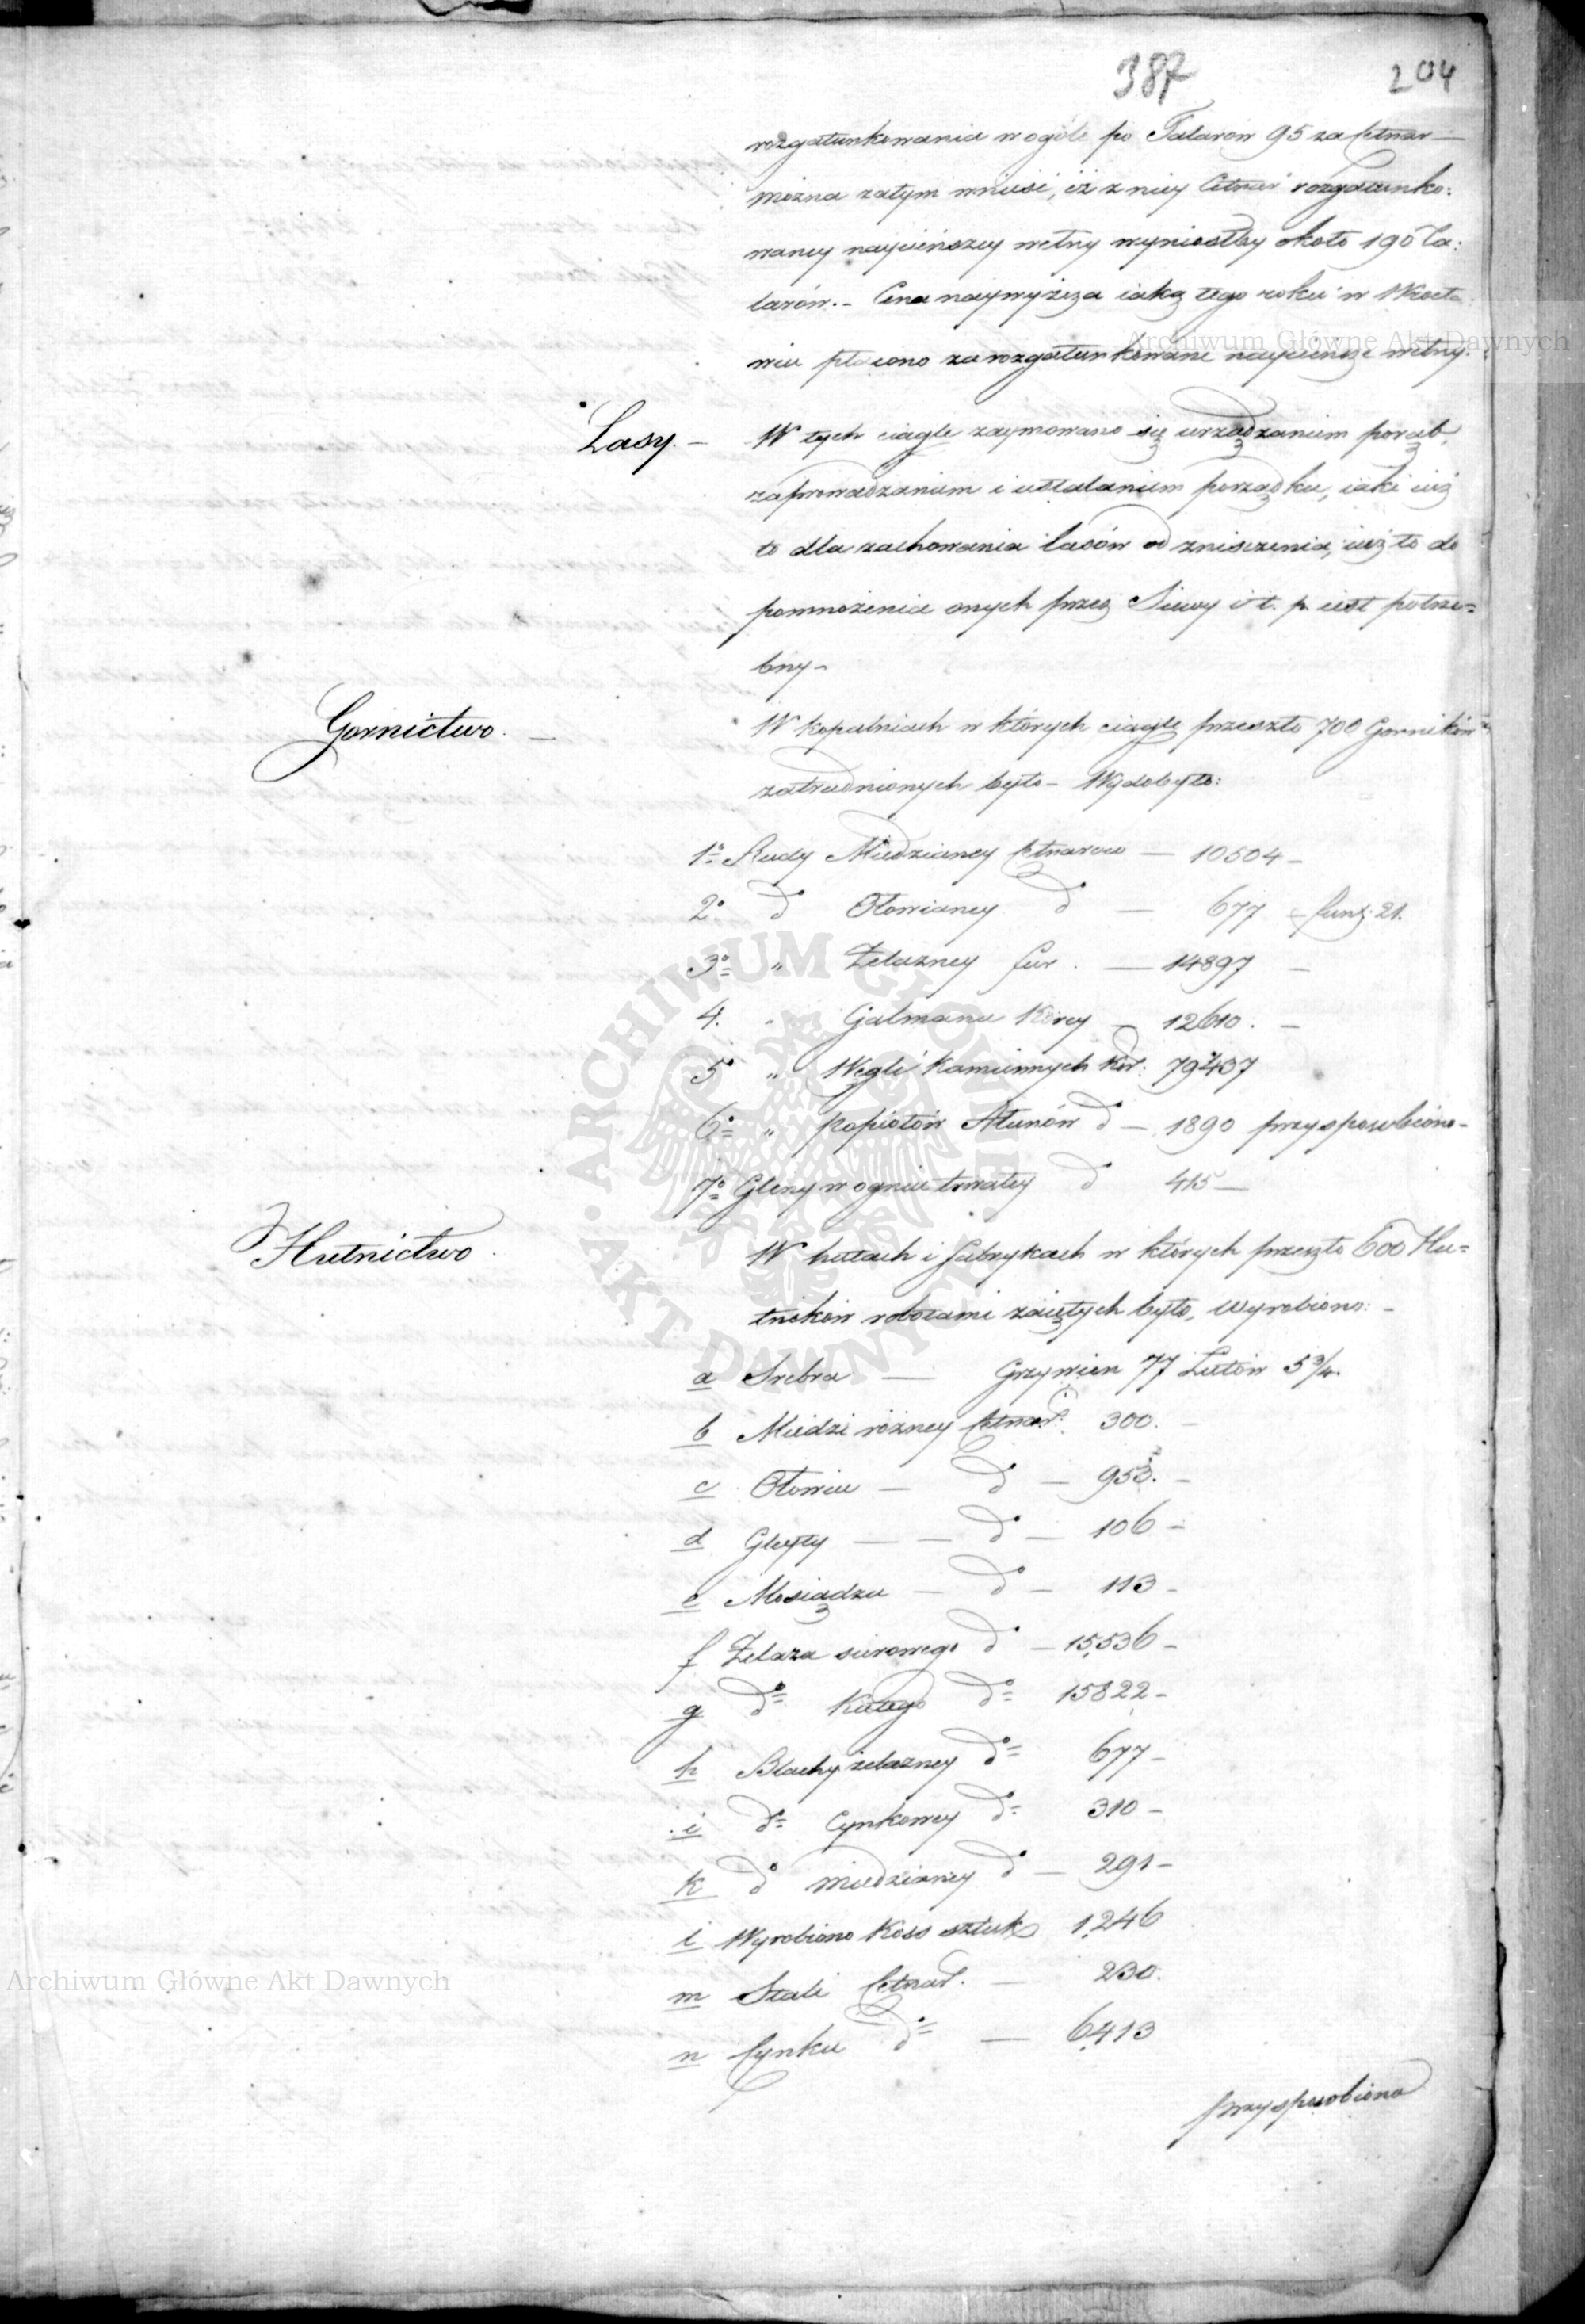 387 204
rozgatunkowania w ogóle po Talarow 95 za Cetnar —
można zatym wnieść, iż z niey Cetnar rozgatunko:
waney naycieńszey wełny wyniosłby około 190 Ta:
larów. – Cena naywyższa iaką tego roku w Wrocła
wiu płacono za rozgatunkowane naycieńsze wełny.
Lasy. – W tych ciągle zaymowano się urządzaniem poręb,
zaprowadzaniem i ustalaniem porządku, iaki iuż
to dla zachowania lasów od zniszczenia, iuż to do
pomnożenia onych przez Siewy i t. p. iest potrze=
bny –
Gornictwo. — W kopalniach w których ciągle przeszło 700 Gorników
zatrudnionych było – Wydobyto:
1º Rudy Miedzianey Cetnarow — 10504 –
2º dº Ołowianey dº — 677 – funt: 21.
3º „ Żelazney fur. — 14897 –
4. „ Galmanu Korcy – 12610. –
5º „ Węgli Kamiennych Kor: 79437
6º „ popiołów Ałunów dº – 1890 przysposobiono –
7º Gliny w ogniu trwałey dº 415 —
Hutnictwo. W hutach i fabrykach w których przeszło 600 Hu=
tników robotami zaiętych było, wyrobiono: –
a Srebra — Grzywien 77 Łutów 5 3/4.
b Miedzi różney Cetnar: 300. –
c Ołowiu — dº — 953. –
d Gleyty — — dº — 106 –
e Mosiądzu — dº — 113 –
f Żelaza surowego dº — 15,536 –
g dº Kutego dº 15822 –
h Blachy żelazney dº 677 –
i dº Cynkowey dº 310 –
k dº miedzianey dº — 291 –
l Wyrobiono Koss sztuk 1,246
m Stali Cetnar. — 230.
n Cynku dº — 6,413
przysposobiono
Archiwum Główne Akt Dawnych
Archiwum Główne Akt Dawnych
ARCHIWUM GŁÓWNE AKT DAWNYCH